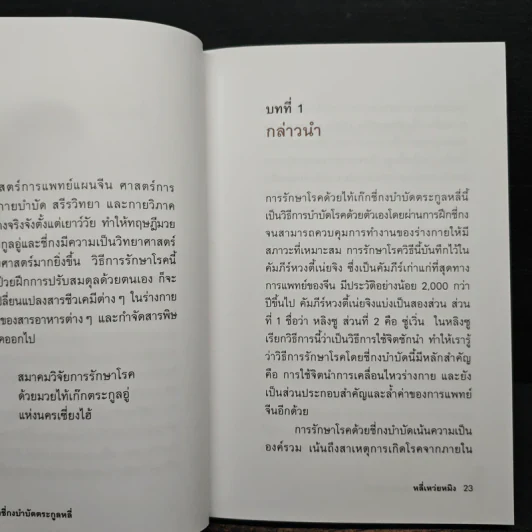 สตร์การแพทย์แผนจีน ศาสตร์การ
กายบำบัด สรีรวิทยา และกายวิภาค
งจริงจังตั้งแต่เยาว์วัย ทำให้ทฤษฎีมวย
กูลอู่และชี่กงมีความเป็นวิทยาศาสตร์
ศาสตร์มากยิ่งขึ้น วิธีการรักษาโรคนี้
ป่วยฝึกการปรับสมดุลด้วยตนเอง ก็จะ
ปลี่ยนแปลงสารชีวเคมีต่าง ๆ ในร่างกาย
ของสารอาหารต่าง ๆ และกำจัดสารพิษ
คออกไป
สมาคมวิจัยการรักษาโรค
ด้วยมวยไท้เก๊กตระกูลอู่
แห่งนครเซี่ยงไฮ้
ชี่กงบำบัดตระกูลหลี่
บทที่ 1
กล่าวนำ
การรักษาโรคด้วยไท้เก๊กชี่กงบำบัดตระกูลหลี่นี้
เป็นวิธีการบำบัดโรคด้วยตัวเองโดยผ่านการฝึกชี่กง
จนสามารถควบคุมการทำงานของร่างกายให้มี
สภาวะที่เหมาะสม การรักษาโรควิธีนี้บันทึกไว้ใน
คัมภีร์หวงตี้เน่ยจิง ซึ่งเป็นคัมภีร์เก่าแก่ที่สุดทาง
การแพทย์ของจีน มีประวัติอย่างน้อย 2,000 กว่า
ปีขึ้นไป คัมภีร์หวงตี้เน่ยจิงแบ่งเป็นสองส่วน ส่วน
ที่ 1 ชื่อว่า หลิงซู ส่วนที่ 2 คือ ซู่เวิ่น ในหลิงซู
เรียกวิธีการนี้ว่าเป็นวิธีการใช้จิตชักนำ ทำให้เรารู้
ว่าวิธีการรักษาโรคโดยชี่กงบำบัดนี้มีหลักสำคัญ
คือ การใช้จิตนำการเคลื่อนไหวร่างกาย และยัง
เป็นส่วนประกอบสำคัญและล้ำค่าของการแพทย์
จีนอีกด้วย
การรักษาโรคด้วยชี่กงบำบัดเน้นความเป็น
องค์รวม เน้นถึงสาเหตุการเกิดโรคจากภายใน
หลี่เหว่ยหมิง 23